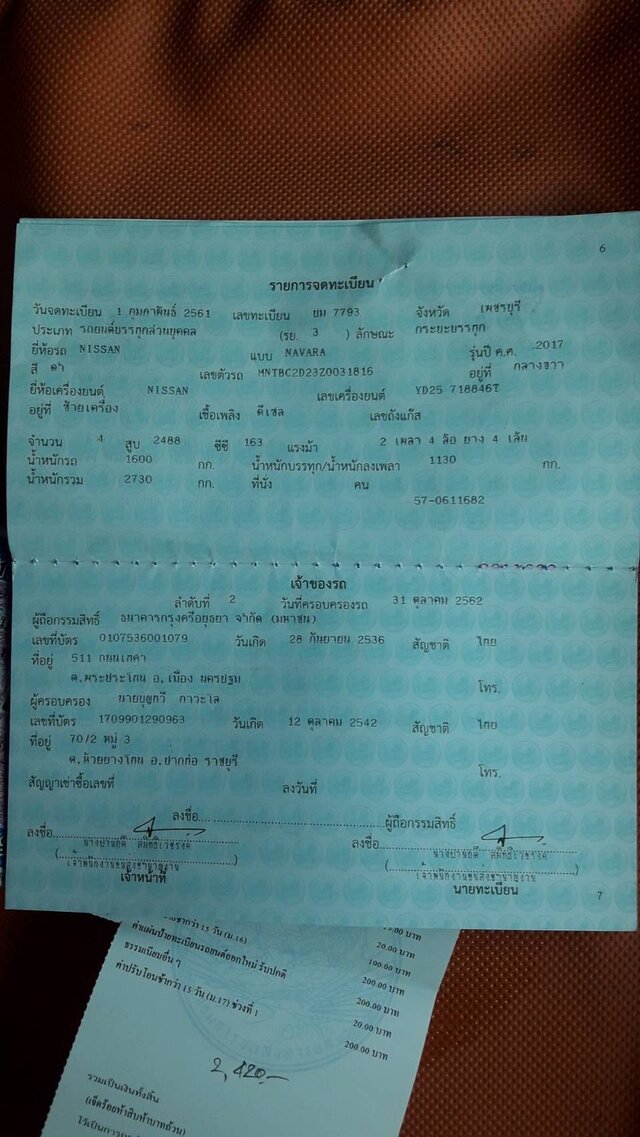 6
รายการจดทะเบียน
วันจดทะเบียน 1 กุมภาพันธ์ 2561 เลขทะเบียน ยม 7793 จังหวัด เพชรบุรี
ประเภท รถยนต์บรรทุกส่วนบุคคล (รย. 3 ) ลักษณะ กระบะบรรทุก
ยี่ห้อรถ NISSAN แบบ NAVARA รุ่นปี ค.ศ. 2017
สี ดำ เลขตัวรถ MNTBC2D23Z0031816 อยู่ที่ กลางขวา
ยี่ห้อเครื่องยนต์ NISSAN เลขเครื่องยนต์ YD25 718846T
อยู่ที่ ซ้ายเครื่อง เชื้อเพลิง ดีเซล เลขถังแก๊ส
จำนวน 4 สูบ 2488 ซีซี 163 แรงม้า 2 เพลา 4 ล้อ ยาง 4 เส้น
น้ำหนักรถ 1600 กก. น้ำหนักบรรทุก/น้ำหนักลงเพลา 1130 กก.
น้ำหนักรวม 2730 กก. ที่นั่ง คน
57-0611682
เจ้าของรถ
ลำดับที่ 2 วันที่ครอบครองรถ 31 ตุลาคม 2562
ผู้ถือกรรมสิทธิ์ ธนาคารกรุงศรีอยุธยา จำกัด (มหาชน)
เลขที่บัตร 0107536001079 วันเกิด 28 กันยายน 2536 สัญชาติ ไทย
ที่อยู่ 511 ถนนเทศา
ต.พระประโทน อ.เมือง นครปฐม โทร.
ผู้ครอบครอง นายบุญทวี กาวะโล
เลขที่บัตร 1709901290963 วันเกิด 12 ตุลาคม 2542 สัญชาติ ไทย
ที่อยู่ 70/2 หมู่ 3
ต.ห้วยยางโทน อ.ปากท่อ ราชบุรี โทร.
สัญญาเช่าซื้อเลขที่ ลงวันที่
ลงชื่อ ผู้ถือกรรมสิทธิ์
ลงชื่อ ลงชื่อ
(เจ้าพนักงานขนส่งชำนาญงาน) (เจ้าพนักงานขนส่งชำนาญงาน)
เจ้าหน้าที่ นายทะเบียน
7
ช้ากว่า 15 วัน (ม.16)
ค่าแผ่นป้ายทะเบียนรถยนต์ออกใหม่ รับปกติ
ธรรมเนียมอื่น ๆ
ค่าปรับโอนช้ากว่า 15 วัน (ม.17) ช่วงที่ 1
20.00 บาท
100.00 บาท
200.00 บาท
200.00 บาท
20.00 บาท
200.00 บาท
2,420.-
รวมเป็นเงินทั้งสิ้น
(เจ็ดร้อยห้าสิบห้าบาทถ้วน)